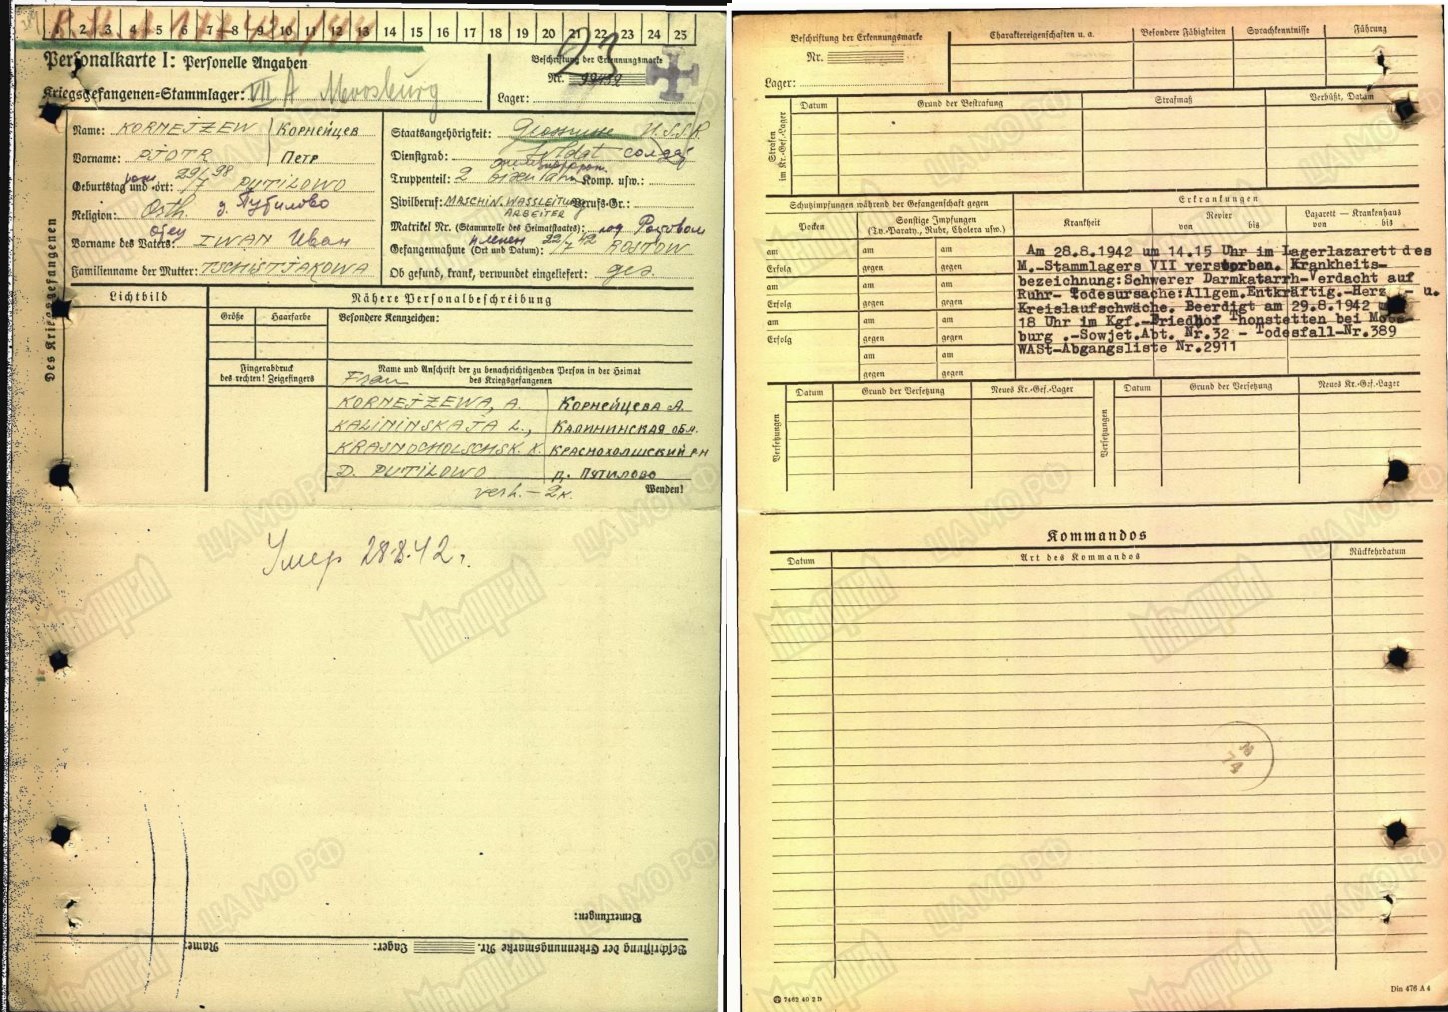 1 2 3 4 5 6 7 8 9 10 11 12 13 14 15 16 17 18 19 20 21 22 23 24 25
Personalkarte I: Personelle Angaben
Beschriftung der Erkennungsmarke
Nr.
Kriegsgefangenen-Stammlager: VII A Moosburg
Lager:
93
Des Kriegsgefangenen
Name: KORNEJZEW | Корнейцев
Vorname: PJOTR | Петр
Geburtstag und -ort: 29/7 98 PUTILOWO
Religion: Orth. д. Путилово
Vorname des Vaters: IWAN Иван
отец
Familienname der Mutter: TSCHISTJAKOWA
Staatsangehörigkeit: U.S.S.R.
Dienstgrad: Soldat солдат
Truppenteil: 2 Komp. usw.:
Zivilberuf: MASCHIN. WASSLEITUNG Berufs-Gr.:
ARBEITER
Matrikel Nr. (Stammrolle des Heimatstaates): под Ростовом
пленен
Gefangennahme (Ort und Datum): 22/7 42 ROSTOW
Ob gesund, krank, verwundet eingeliefert: ges.
Lichtbild
Nähere Personalbeschreibung
Größe
Haarfarbe
Besondere Kennzeichen:
Fingerabdruck
des rechten! Zeigefingers
Name und Anschrift der zu benachrichtigenden Person in der Heimat
des Kriegsgefangenen
Frau
KORNEJZEWA, A. Корнейцева А.
KALININSKAJA L., Калининская обл.
KRASNOCHOLSCHSK. X. Краснохолшский рн
D. PUTILOWO д. Путилово
verh. – 2 к.
Wenden!
Умер 28.8.42 г.
Bemerkungen:
Beschriftung der Erkennungsmarke Nr. Lager: Name:
Beschriftung der Erkennungsmarke
Nr.
Lager:
Charaktereigenschaften u. a.
Besondere Fähigkeiten
Sprachkenntnisse
Führung
Strafen
im Kr.-Gef.-Lager
Datum
Grund der Bestrafung
Strafmaß
Verbüßt, Datum
Schutzimpfungen während der Gefangenschaft gegen
Erkrankungen
Pocken
Sonstige Impfungen
(Ty.-Paraty., Ruhr, Cholera usw.)
Krankheit
Revier
von bis
Lazarett — Krankenhaus
von bis
am am am
Erfolg gegen gegen
am am am
Erfolg gegen gegen
am am am
Erfolg gegen gegen
am am
gegen gegen
Am 28.8.1942 um 14.15 Uhr im Lagerlazarett des
M.-Stammlagers VII verstorben. Krankheits-
bezeichnung:Schwerer Darmkatarrh-Verdacht auf
Ruhr- Todesursache:Allgem.Entkräftig.-Herz - u.
Kreislaufschwäche. Beerdigt am 29.8.1942
18 Uhr im Kgf.-Friedhof Thonstetten bei Moos-
burg .-Sowjet.Abt. Nr.32 - Todesfall-Nr.389
WASt-Abgangsliste Nr.2911
Versetzungen
Datum
Grund der Versetzung
Neues Kr.-Gef.-Lager
Versetzungen
Datum
Grund der Versetzung
Neues Kr.-Gef.-Lager
Kommandos
Datum
Art des Kommandos
Rückkehrdatum
7462 40 2 D
Din 476 A 4
ЦА МО РФ
Мемориал